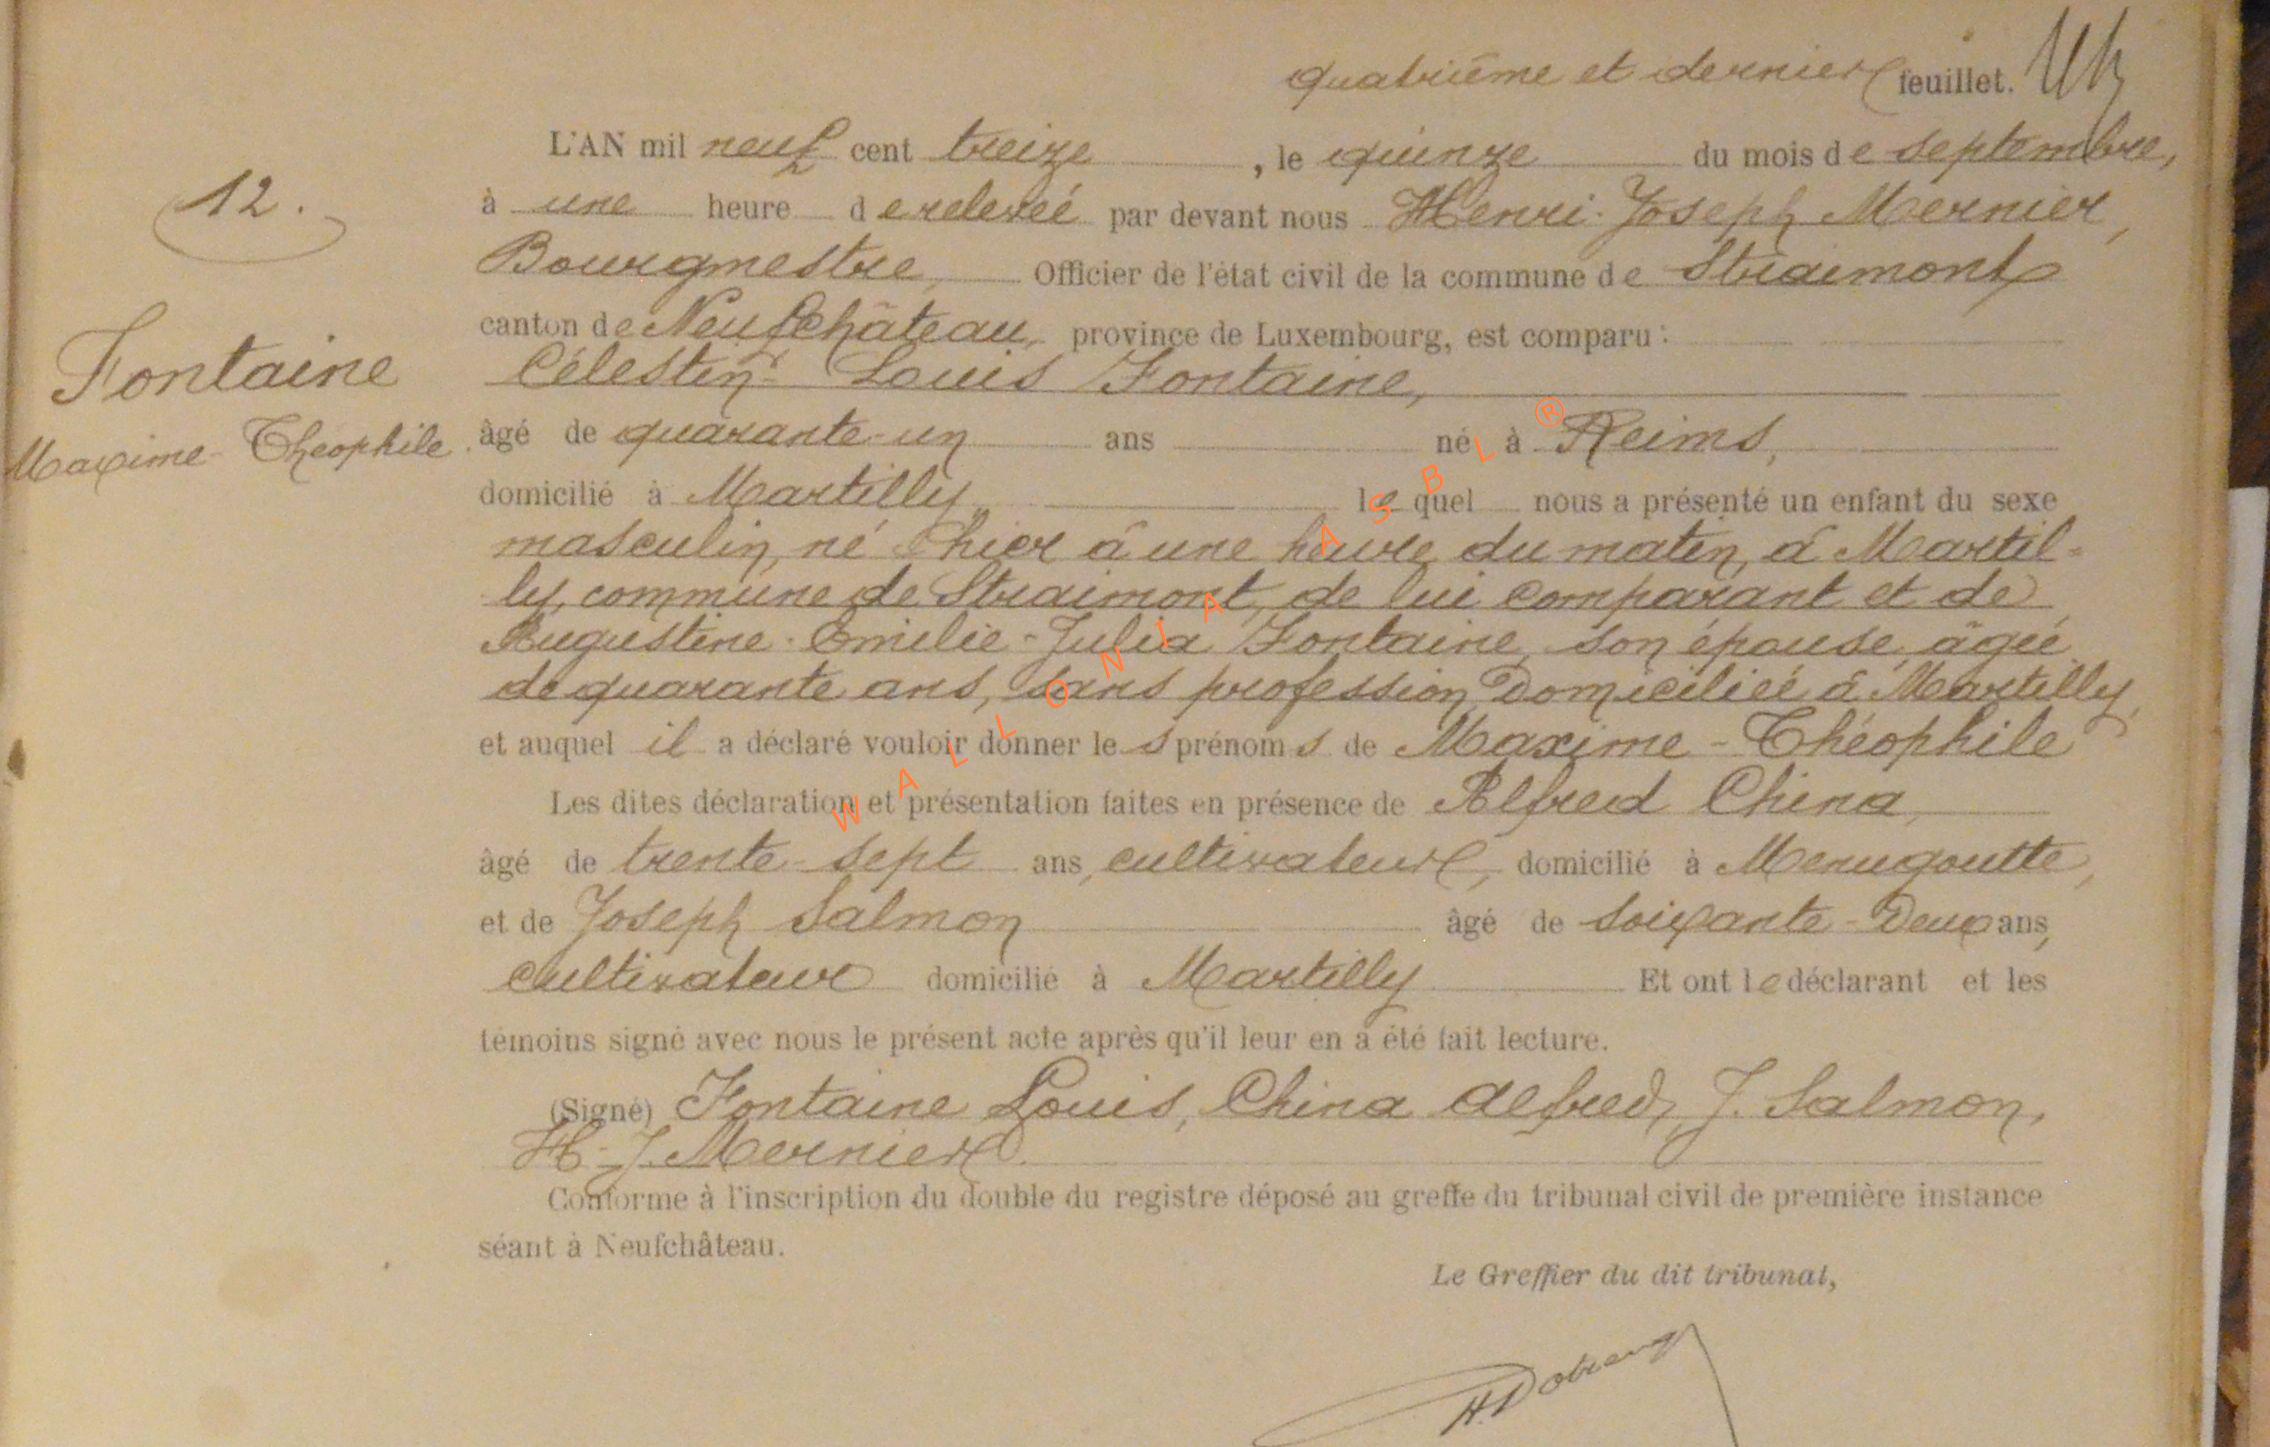 quatriême et dernier feuillet.
L'AN mil neuf cent treize, le quinze du mois de septembre,
12.
à une heure de relevée par devant nous Henri-Joseph Mernier,
Bourgmestre, Officier de l'état civil de la commune de Straimont
canton de Neufchâteau, province de Luxembourg, est comparu :
Fontaine
Maxime-Théophile.
Célestin-Louis Fontaine,
âgé de quarante-un ans né à Reims,
domicilié à Martilly lequel nous a présenté un enfant du sexe
masculin, né hier à une heure du matin, à Martil-
ly, commune de Straimont, de lui comparant et de
Augustine-Emilie-Julia Fontaine, son épouse, âgée
de quarante ans, sans profession, domiciliée à Martilly,
et auquel il a déclaré vouloir donner les prénoms de Maxime-Théophile
Les dites déclaration et présentation faites en présence de Alfred China,
âgé de trente-sept ans, cultivateur, domicilié à Menugoutte,
et de Joseph Salmon âgé de soixante-deux ans,
cultivateur domicilié à Martilly Et ont le déclarant et les
témoins signé avec nous le présent acte après qu'il leur en a été fait lecture.
(Signé) Fontaine Louis, China Alfred, J. Salmon,
H-J. Mernier.
Conforme à l'inscription du double du registre déposé au greffe du tribunal civil de première instance
séant à Neufchâteau.
Le Greffier du dit tribunal,
WALLONIA ASBL ®